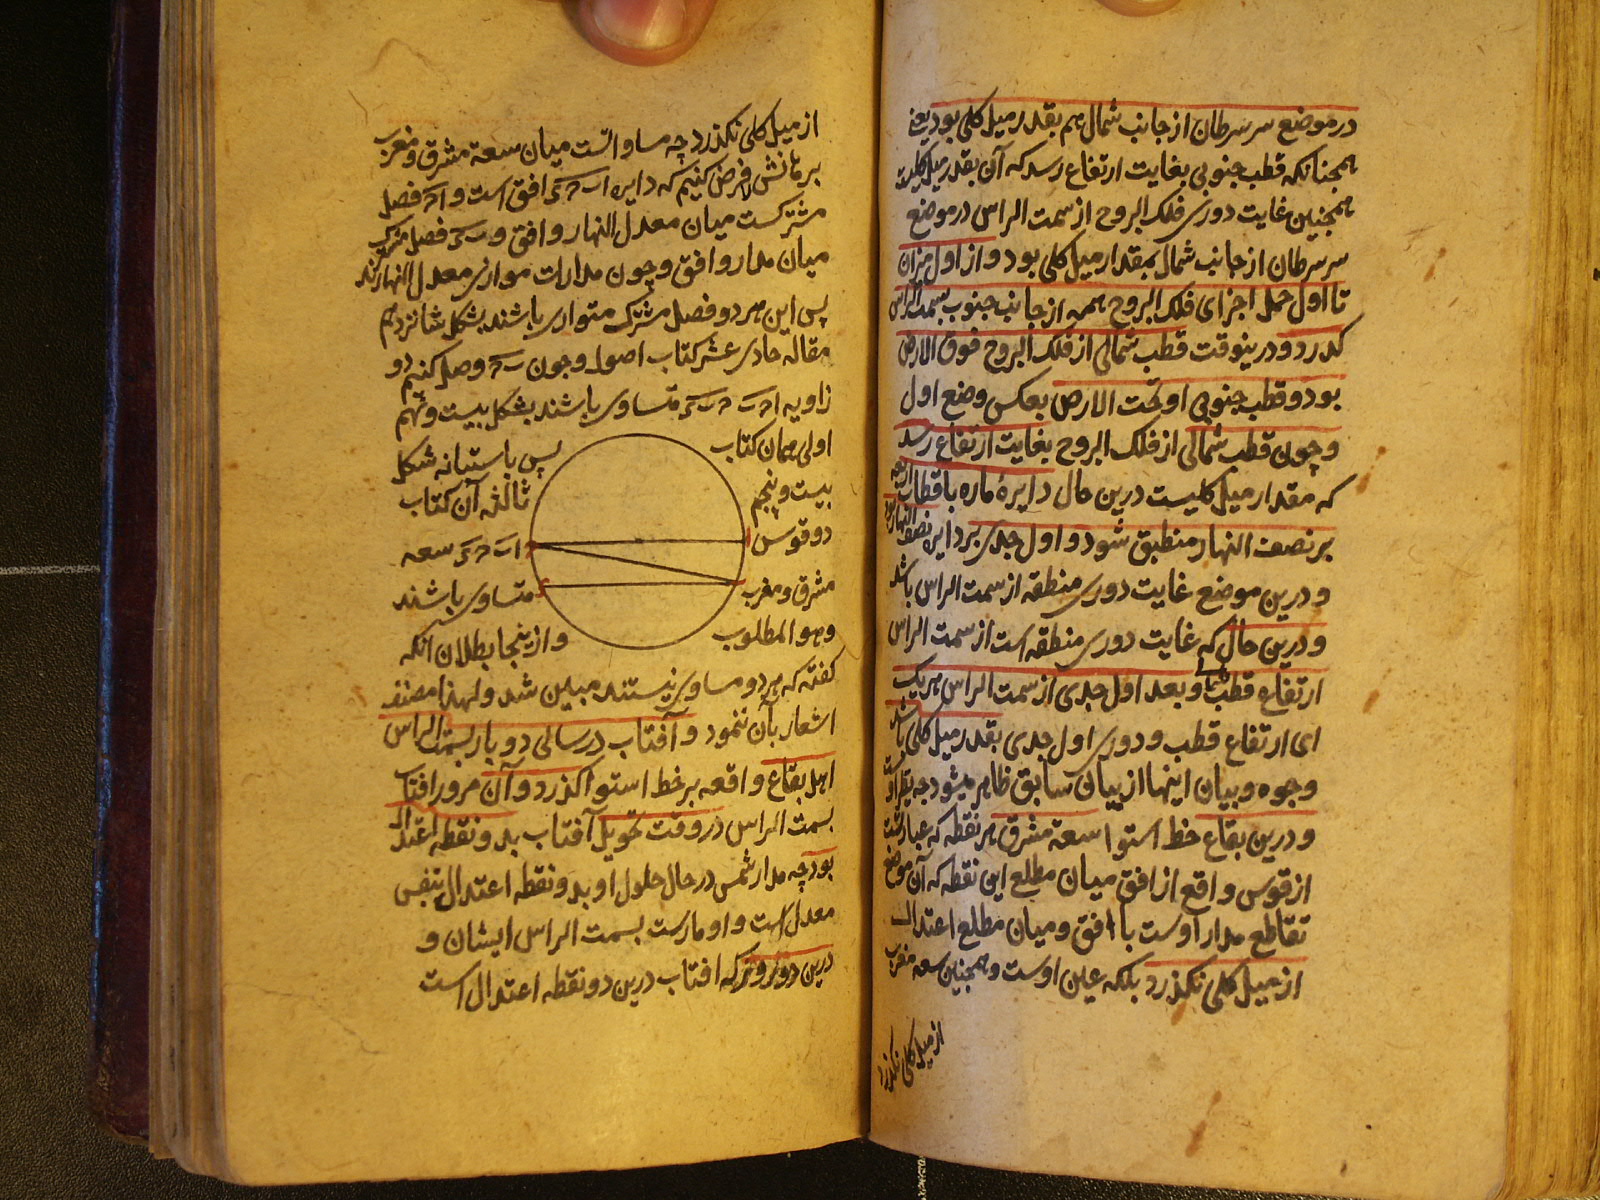 در موضع سر سرطان از جانب شمال هم بقدر میل کلی بود یعنی
همچنانکه قطب جنوبی بغایت ارتفاع رسد که آن بقدر میل کلیست
همچنین غایت دوری فلک البروج از سمت الراس در موضع
سر سرطان از جانب شمال بمقدار میل کلی بود و از اول میزان
تا اول حمل اجزای فلک البروج همه از جانب جنوب بسمت الراس
کذرد و درینوقت قطب شمالی از فلک البروج فوق الارض
بود و قطب جنوبی او تحت الارض بعکس وضع اول
و چون قطب شمالی از فلک البروج بغایت ارتفاع رسد
که مقدار میل کلیست درین حال دایرۀ ماره باقطاب اربعه
بر نصف النهار منطبق شود و اول جدی بر دایره نصف النهار بود
و درین موضع غایت دوری منطقه از سمت الراس باشد
و درین حال که غایت دوری منطقه است از سمت الراس
ارتفاع قطب شمالی و بعد اول جدی از سمت الراس هر یک
ای ارتفاع قطب و دوری اول جدی بقدر میل کلی باشد
وجوه و بیان اینها از بیان سابق ظاهر میشود
و درین بقاع خط استوا سعة مشرق هر نقطه که عبارتست
از قوس واقع از افق میان مطلع این نقطه که آن موضع
تقاطع مدار اوست با افق و میان مطلع اعتدال
از میل کلی نکذرد بلکه عین اوست و همچنین سعه مغرب
از میل کلی نکذرد
از میل کلی نکذرد چه مساوالست میان سعة مشرق و مغرب
برهانش فرض کنیم که دایره اب ح ی افق است و اح فصل
مشترکست میان معدل النهار و افق و ب ی فصل مشترک
میان مدار و افق و چون مدارات موازی معدل النهارند
پس این هر دو فصل مشترک متوازی باشند بشکل شانزدهم
مقاله حادی عشر کتاب اصول و چون ب ح وصل کنیم دو
زاویه اح ب ح ب ی متساوی باشند بشکل بیست و نهم
اولی همان کتاب پس باستبانه شکل
بیست و پنجم ثالثه آن کتاب
دو قوس اب ح ی سعه
مشرق و مغرب متساوی باشند
وهو المطلوب و از ینجا بطلان انکه
کفته که هر دو مساوی نیستند مبین شد و لهذا مصنف
اشعار بآن ننمود و آفتاب در سالی دو بار بسمت الراس
اهل بقاع واقعه بر خط استوا کذرد و آن مرور افتاب
بسمت الراس در وقت تحویل آفتاب بدو نقطه اعتدال
بود چه مدار شمس در حال حلول او بدو نقطه اعتدال بنفس
معدل است و او مارست بسمت الراس ایشان و
درین دو روز که افتاب درین دو نقطه اعتدال است